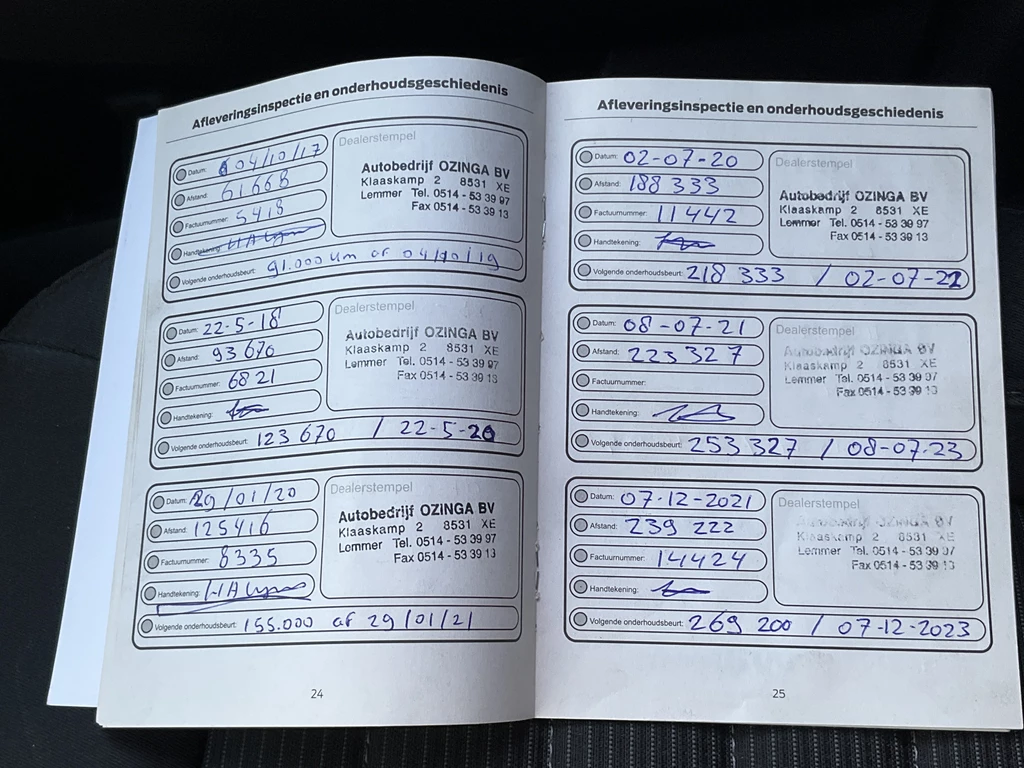 Afleveringsinspectie en onderhoudsgeschiedenis
Datum: 04/10/17
Afstand: 61668
Factuurnummer: 5418
Handtekening:
Volgende onderhoudsbeurt: 91.000 km of 04/10/19
Dealerstempel
Autobedrijf OZINGA BV
Klaaskamp 2 8531 XE
Lemmer Tel. 0514 - 53 39 97
Fax 0514 - 53 39 13
Datum: 22-5-18
Afstand: 93 670
Factuurnummer: 6821
Handtekening:
Volgende onderhoudsbeurt: 123 670 / 22-5-20
Dealerstempel
Autobedrijf OZINGA BV
Klaaskamp 2 8531 XE
Lemmer Tel. 0514 - 53 39 97
Fax 0514 - 53 39 13
Datum: 29/01/20
Afstand: 125416
Factuurnummer: 8335
Handtekening:
Volgende onderhoudsbeurt: 155.000 of 29/01/21
Dealerstempel
Autobedrijf OZINGA BV
Klaaskamp 2 8531 XE
Lemmer Tel. 0514 - 53 39 97
Fax 0514 - 53 39 13
24
Afleveringsinspectie en onderhoudsgeschiedenis
Datum: 02-07-20
Afstand: 188 333
Factuurnummer: 11442
Handtekening:
Volgende onderhoudsbeurt: 218 333 / 02-07-22
Dealerstempel
Autobedrijf OZINGA BV
Klaaskamp 2 8531 XE
Lemmer Tel. 0514 - 53 39 97
Fax 0514 - 53 39 13
Datum: 08-07-21
Afstand: 223 327
Factuurnummer:
Handtekening:
Volgende onderhoudsbeurt: 253 327 / 08-07-23
Dealerstempel
Autobedrijf OZINGA BV
Klaaskamp 2 8531 XE
Lemmer Tel. 0514 - 53 39 97
Fax 0514 - 53 39 13
Datum: 07-12-2021
Afstand: 239 222
Factuurnummer: 14424
Handtekening:
Volgende onderhoudsbeurt: 269 200 / 07-12-2023
Dealerstempel
Autobedrijf OZINGA BV
Klaaskamp 2 8531 XE
Lemmer Tel. 0514 - 53 39 97
Fax 0514 - 53 39 13
25